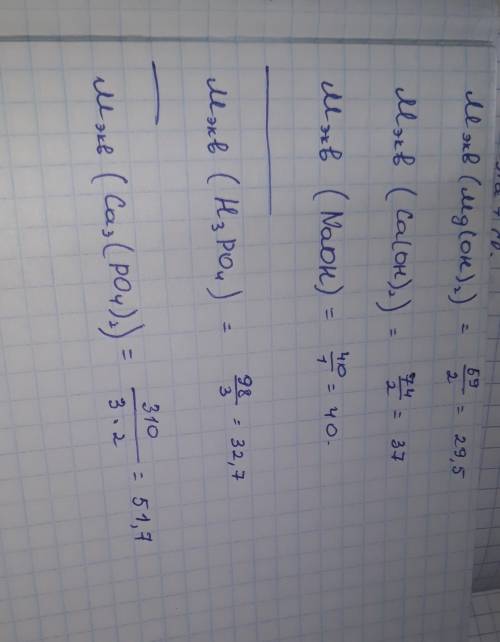 Mэкв (Mg(OH)₂) = 59/2 = 29,5
Mэкв (Ca(OH)₂) = 74/2 = 37
Mэкв (NaOH) = 40/1 = 40.
Mэкв (H₃PO₄) = 98/3 = 32,7
Mэкв (Ca₃(PO₄)₂) = 310/3·2 = 51,7